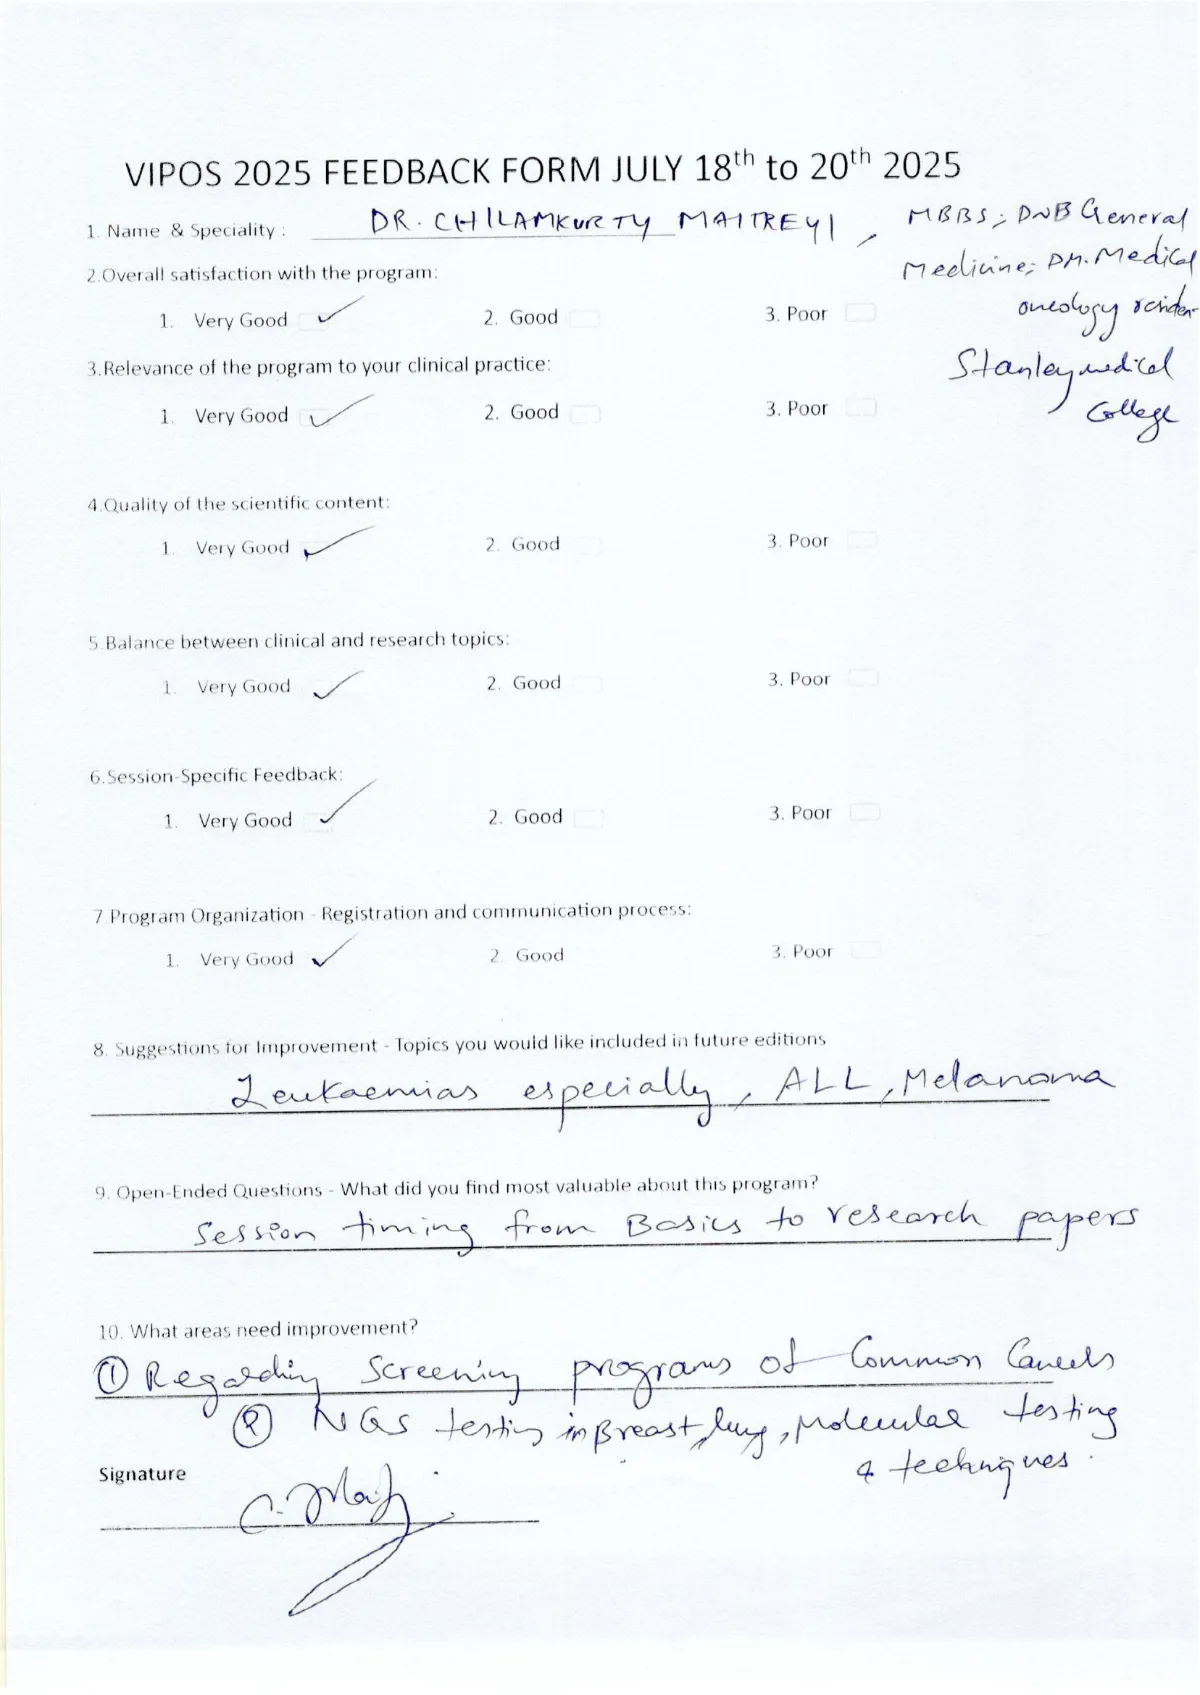 VIPOS 2025 FEEDBACK FORM JULY 18th to 20th 2025
1. Name & Speciality : DR. CHILAMKURTY MAITREYI, MBBS; DNB General
Medicine; DM. Medical
oncology residen
Stanley medical
College
2.Overall satisfaction with the program:
1. Very Good ✓ 2. Good 3. Poor
3.Relevance of the program to your clinical practice:
1. Very Good ✓ 2. Good 3. Poor
4.Quality of the scientific content:
1. Very Good ✓ 2. Good 3. Poor
5.Balance between clinical and research topics:
1. Very Good ✓ 2. Good 3. Poor
6.Session-Specific Feedback:
1. Very Good ✓ 2. Good 3. Poor
7.Program Organization - Registration and communication process:
1. Very Good ✓ 2. Good 3. Poor
8. Suggestions for Improvement - Topics you would like included in future editions
Leukaemias especially, ALL, Melanoma
9. Open-Ended Questions - What did you find most valuable about this program?
Session timing from Basics to research papers
10. What areas need improvement?
① Regarding Screening programs of Common Cancers
② NGS testing in Breast, lung, Molecular testing
& techniques.
Signature